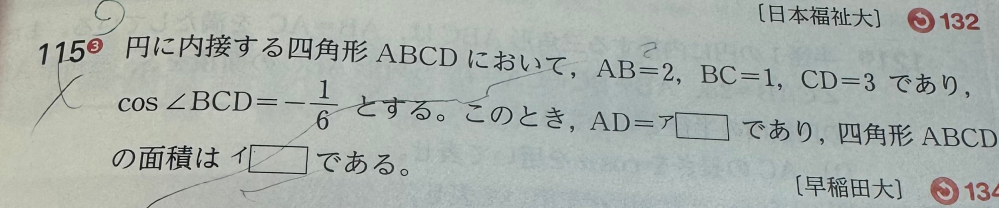 〔日本福祉大〕 132
115 3 円に内接する四角形 ABCD において，AB=2，BC=1，CD=3 であり，
cos∠BCD=−1/6 とする。このとき，AD=ア□ であり，四角形 ABCD
の面積は イ□ である。
〔早稲田大〕 134